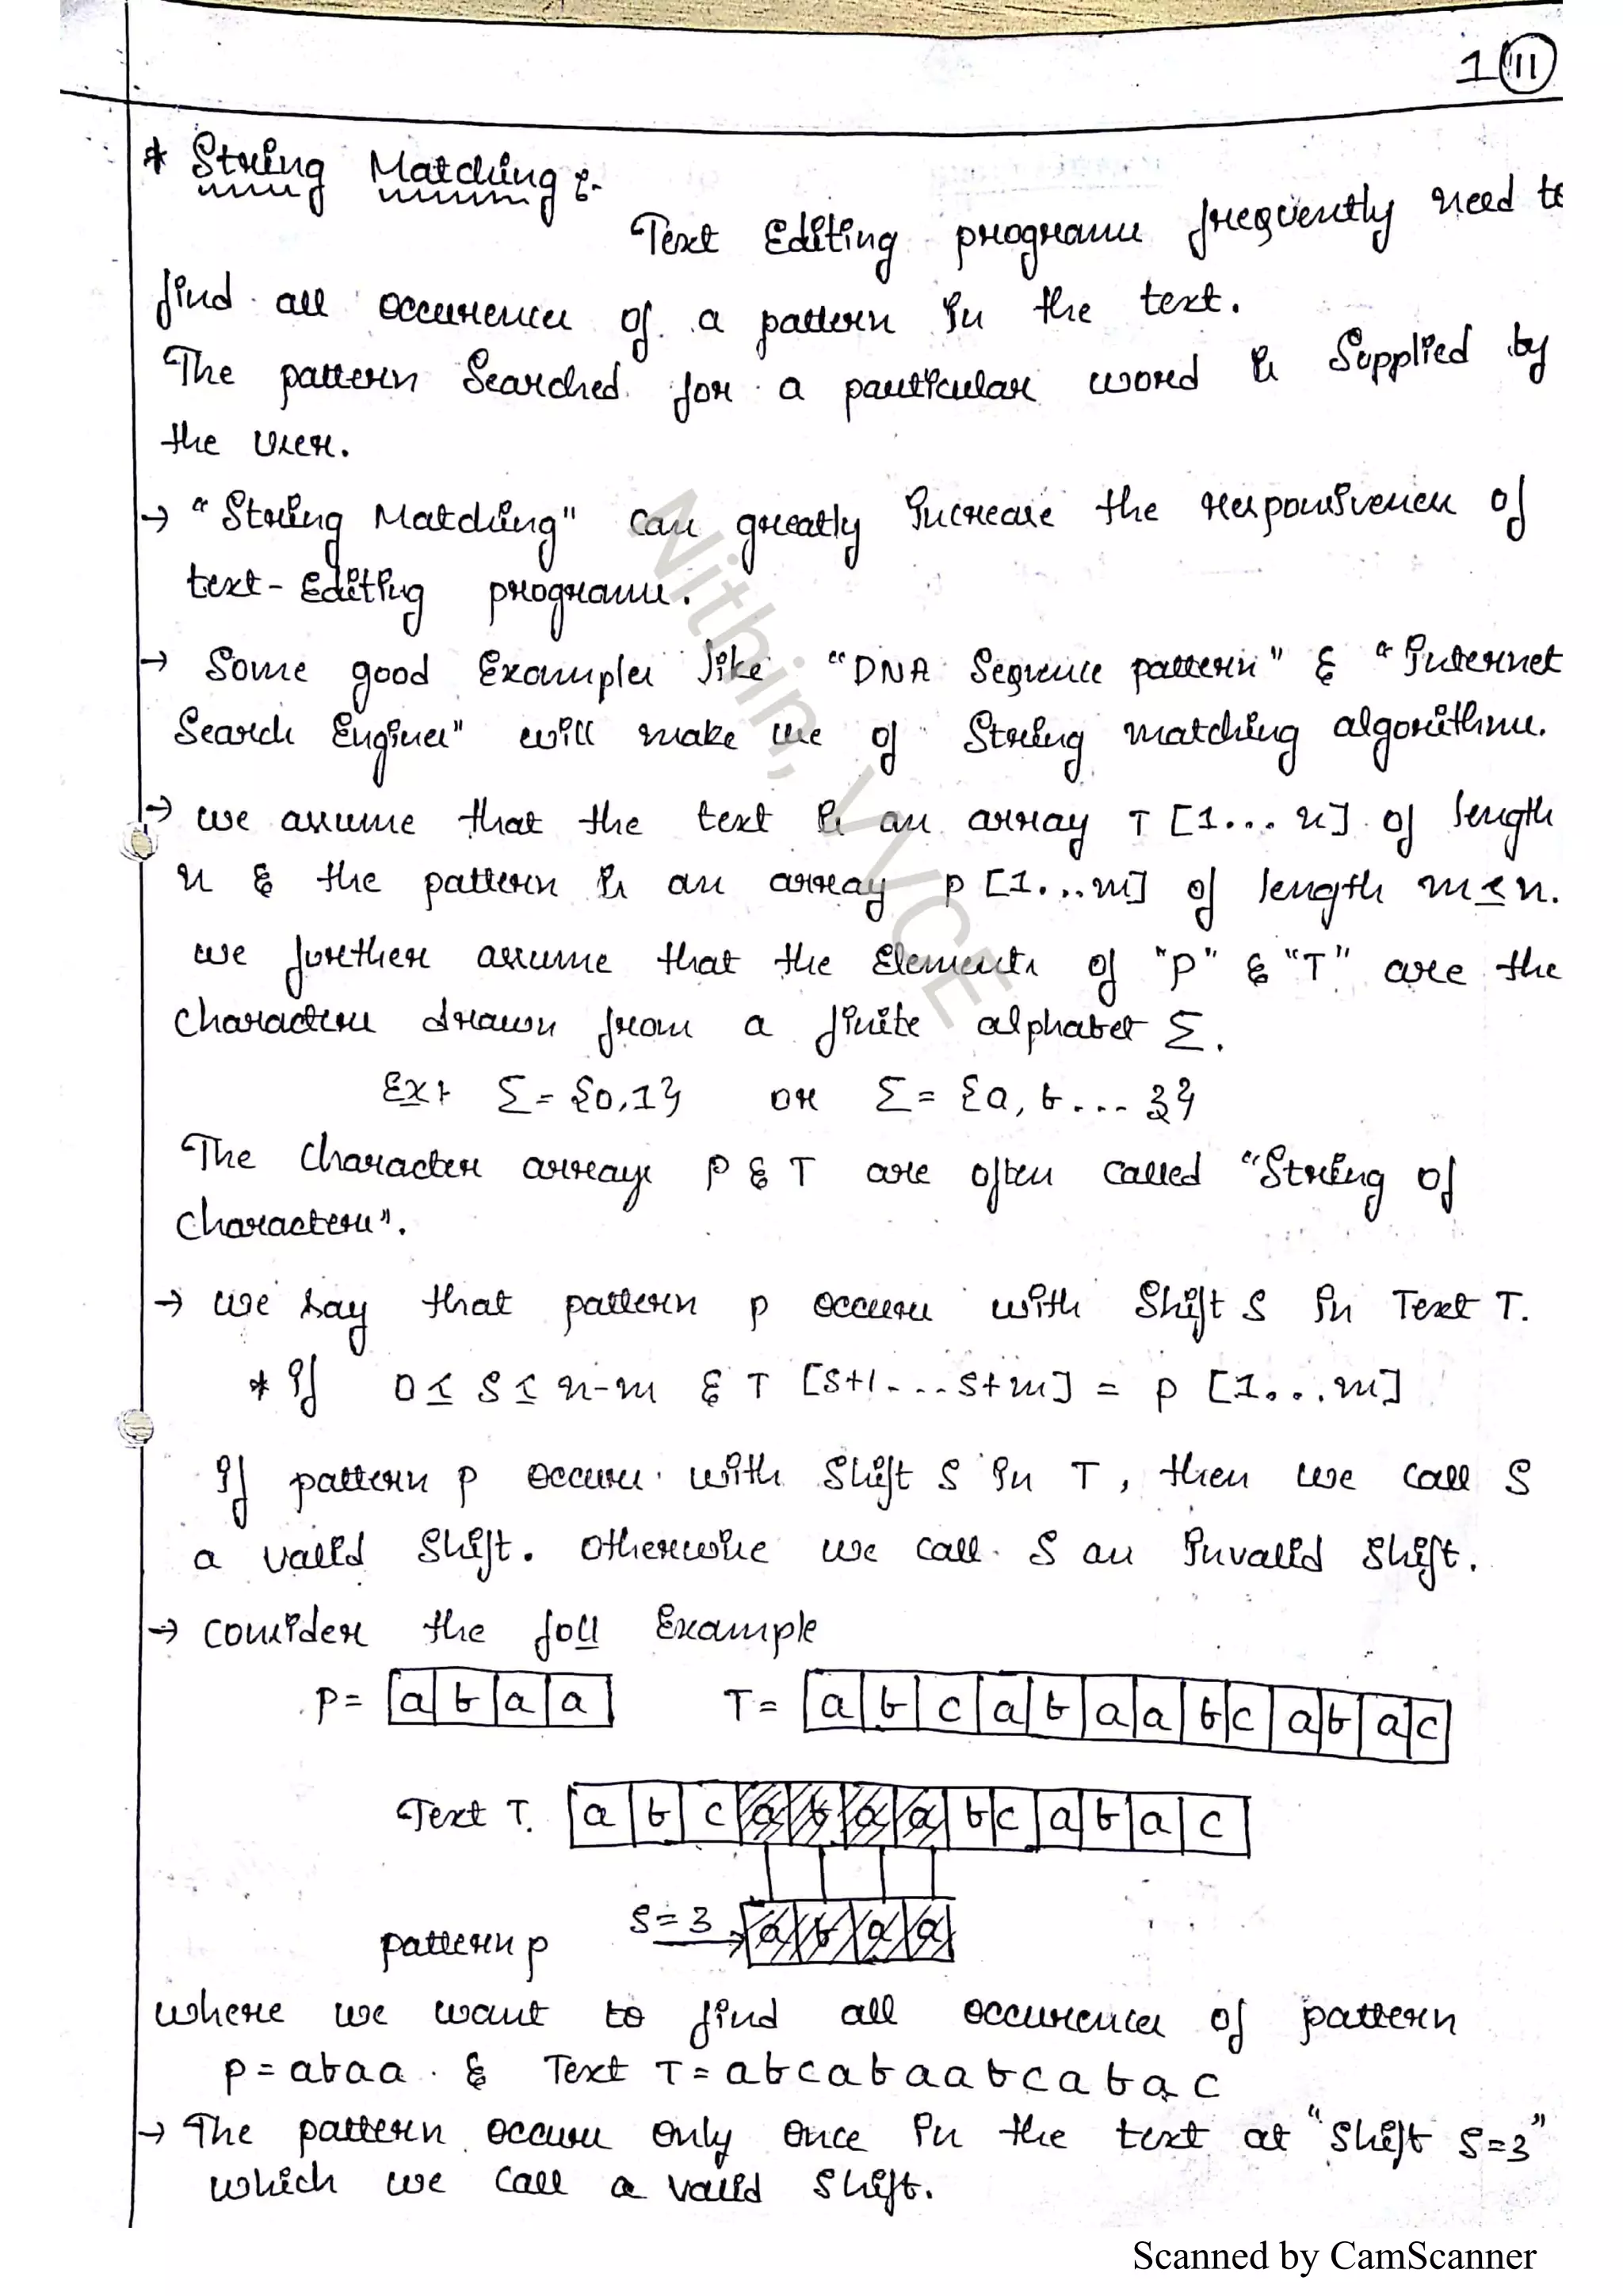 1 III
* String Matching :-
Text Editing programs frequently need to
find all occurences of a pattern in the text.
The pattern Searched for a particular word is Supplied by
the user.
→ "String Matching" can greatly increase the responsiveness of
text-Editing programs.
→ Some good Examples like "DNA Sequence pattern" & "Internet
Search Engines" will make use of String matching algorithms.
→ we assume that the text is an array T [1... n] of length
n & the pattern is an array P [1...m] of length m ≤ n.
we further assume that the Elements of "P" & "T" are the
characters drawn from a finite alphabet Σ.
Ex: Σ = {0,1} or Σ = {a, b ... z}
The Character arrays P & T are often called "String of
characters".
→ we say that pattern P occurs with Shift S in Text T.
* If 0 ≤ S ≤ n-m & T [S+1 ... S+m] = P [1...m]
If pattern P occurs with Shift S in T, then we call S
a valid Shift. Otherwise we call S an Invalid Shift.
→ consider the foll Example
P = a b a a T = a b c a b a a b c a b a c
Text T. a b c a b a a b c a b a c
pattern P S=3 a b a a
where we want to find all occurences of pattern
P = abaa . & Text T = abcabaabcabac
→ The pattern occurs only once in the text at "Shift S=3"
which we call a valid Shift.
Nithin, VVCE
Scanned by CamScanner